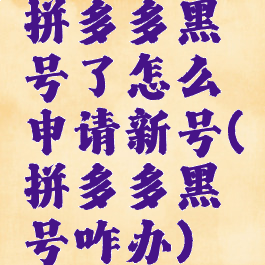 拼多多黑
号了怎么
申请新号(
拼多多黑
号咋办)